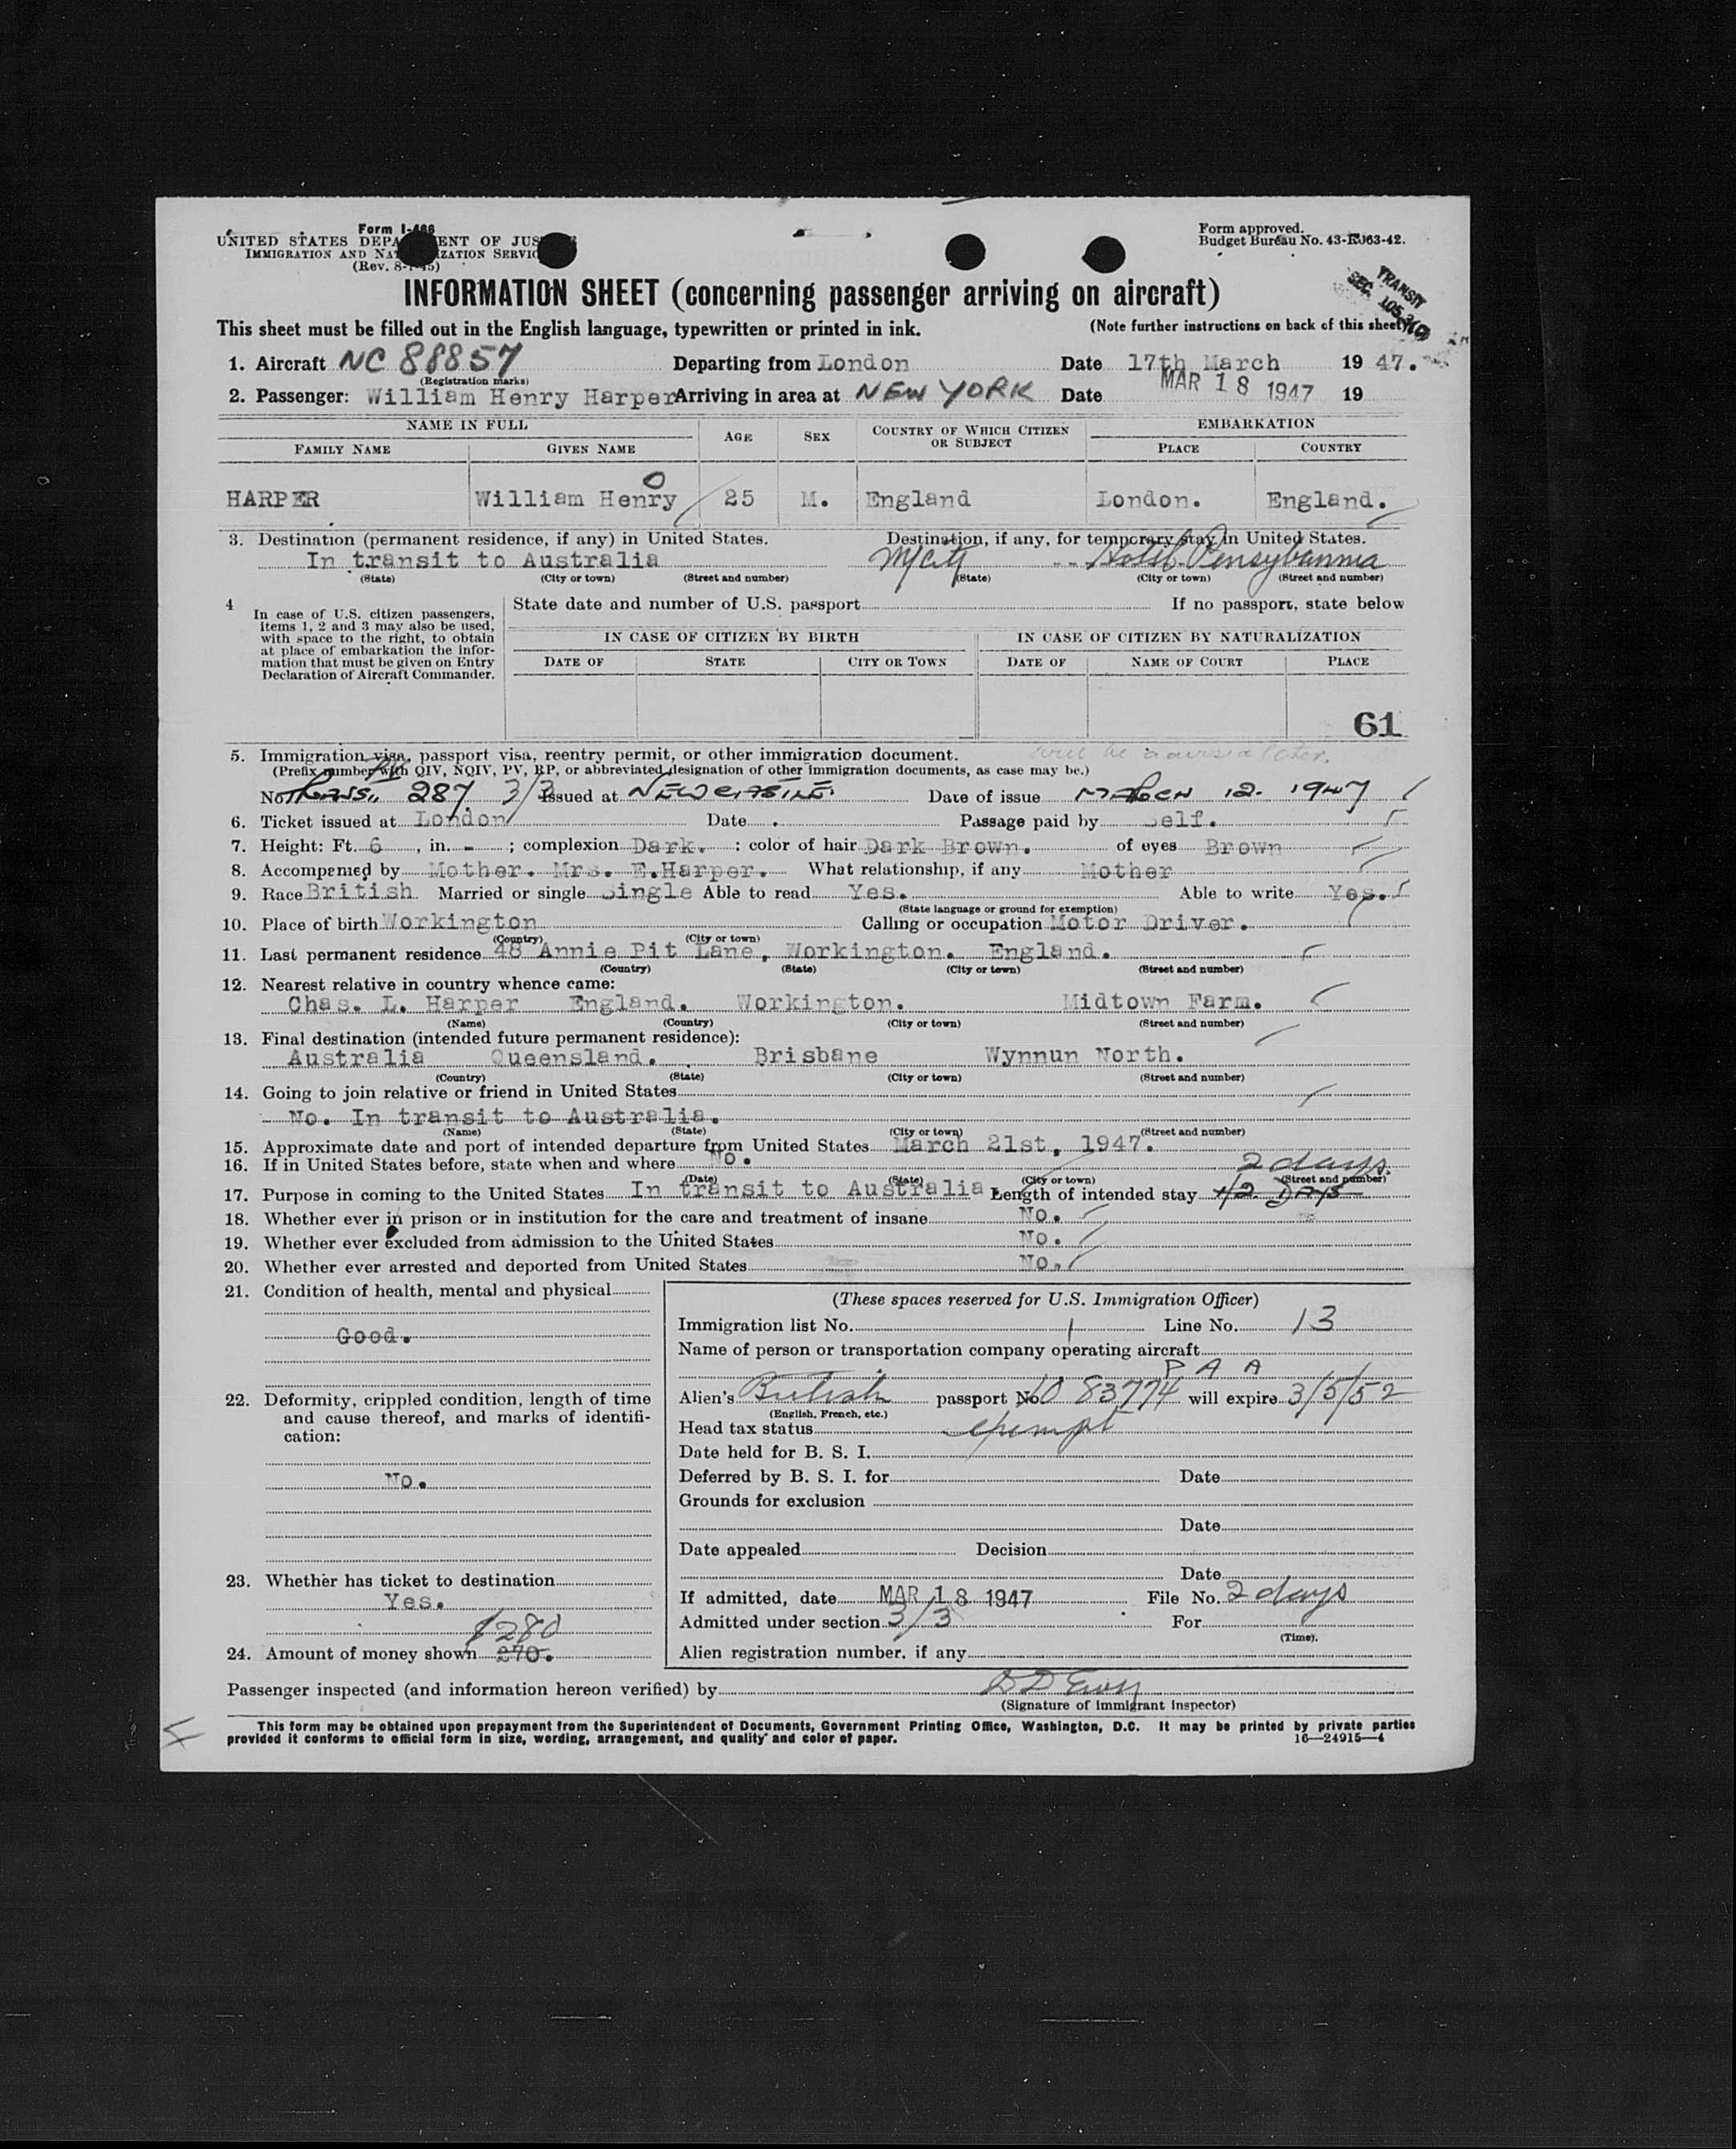 Form I-466
UNITED STATES DEPA ENT OF JUS
IMMIGRATION AND NA IZATION SERVIC
(Rev. 8-1-45)
Form approved.
Budget Bureau No. 43-R063-42.
TRANSIT
SEC.
INFORMATION SHEET (concerning passenger arriving on aircraft)
This sheet must be filled out in the English language, typewritten or printed in ink. (Note further instructions on back of this sheet)
1. Aircraft NC 88857 Departing from London Date 17th March 19 47.
(Registration marks)
2. Passenger: William Henry Harper Arriving in area at NEW YORK Date MAR 18 1947 19
NAME IN FULL AGE SEX COUNTRY OF WHICH CITIZEN OR SUBJECT EMBARKATION
FAMILY NAME GIVEN NAME PLACE COUNTRY
O
HARPER William Henry 25 M. England London. England.
3. Destination (permanent residence, if any) in United States. Destination, if any, for temporary stay in United States.
In transit to Australia NYCity Hotel Pensylvannia
(State) (City or town) (Street and number) (State) (City or town) (Street and number)
4 In case of U.S. citizen passengers, items 1, 2 and 3 may also be used, with space to the right, to obtain at place of embarkation the information that must be given on Entry Declaration of Aircraft Commander.
State date and number of U.S. passport If no passport, state below
IN CASE OF CITIZEN BY BIRTH IN CASE OF CITIZEN BY NATURALIZATION
DATE OF STATE CITY OR TOWN DATE OF NAME OF COURT PLACE
61
5. Immigration visa, passport visa, reentry permit, or other immigration document. will be advised later.
(Prefix number with QIV, NQIV, PV, RP, or abbreviated designation of other immigration documents, as case may be.)
No. TRANS. 287 3/3 Issued at NEWCASTLE Date of issue MARCH 12. 1947
6. Ticket issued at London Date . Passage paid by Self.
7. Height: Ft. 6 , in. - ; complexion Dark. ; color of hair Dark Brown. of eyes Brown
8. Accompanied by Mother. Mrs. E.Harper. What relationship, if any Mother
9. Race British Married or single Single Able to read Yes. Able to write Yes.
(State language or ground for exemption)
10. Place of birth Workington Calling or occupation Motor Driver.
(Country) (City or town)
11. Last permanent residence 48 Annie Pit Lane, Workington. England.
(Country) (State) (City or town) (Street and number)
12. Nearest relative in country whence came:
Chas. L. Harper England. Workington. Midtown Farm.
(Name) (Country) (City or town) (Street and number)
13. Final destination (intended future permanent residence):
Australia Queensland. Brisbane Wynnun North.
(Country) (State) (City or town) (Street and number)
14. Going to join relative or friend in United States
No. In transit to Australia.
(Name) (State) (City or town) (Street and number)
15. Approximate date and port of intended departure from United States March 21st, 1947.
16. If in United States before, state when and where No. 2 days.
(Date) (State) (City or town) (Street and number)
17. Purpose in coming to the United States In transit to Australia. Length of intended stay 1/2 DAYS
18. Whether ever in prison or in institution for the care and treatment of insane No.
19. Whether ever excluded from admission to the United States No.
20. Whether ever arrested and deported from United States No.
21. Condition of health, mental and physical
Good.
22. Deformity, crippled condition, length of time and cause thereof, and marks of identification:
No.
23. Whether has ticket to destination
Yes.
$280
24. Amount of money shown 270.
(These spaces reserved for U.S. Immigration Officer)
Immigration list No. 1 Line No. 13
Name of person or transportation company operating aircraft
P A A
Alien's British passport No. 83774 will expire 3/5/52
(English, French, etc.)
Head tax status exempt
Date held for B. S. I.
Deferred by B. S. I. for Date
Grounds for exclusion
Date
Date appealed Decision
Date
If admitted, date MAR 18 1947 File No. 2 days
Admitted under section 3/3 For
(Time).
Alien registration number, if any
Passenger inspected (and information hereon verified) by
(Signature of immigrant inspector)
This form may be obtained upon prepayment from the Superintendent of Documents, Government Printing Office, Washington, D.C. It may be printed by private parties
provided it conforms to official form in size, wording, arrangement, and quality and color of paper. 16—24915—4